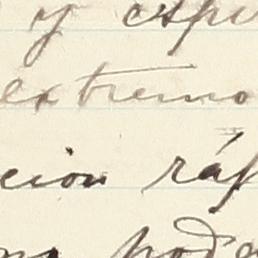 y espe
extremo
cion ráp
no poda